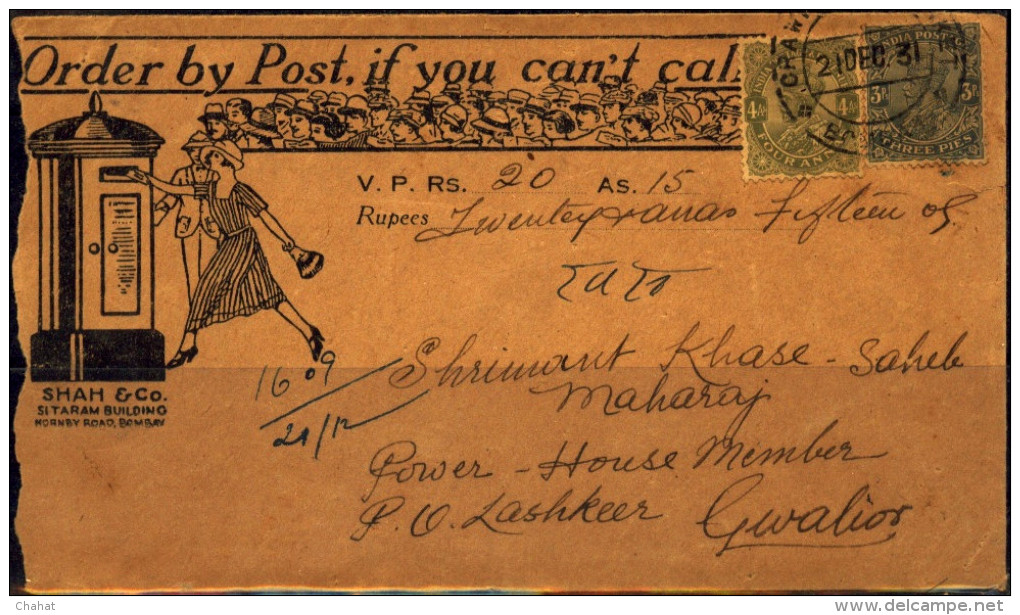 Order by Post, if you can't cal
INDIA POST
4A 4A
FOUR ANN
INDIA POST
3P 3P
THREE PIES
CRAW
21 DEC. 31
V. P. Rs. 20 As. 15
Rupees Twenty annas fifteen
Shrimant Khase - Saheb
Maharaj
Power - House Member
P. O. Lashkeer Gwalior
1609
21/12
SHAH & Co.
SITARAM BUILDING
HORNBY ROAD, BOMBAY
Chahat
delcampe.net